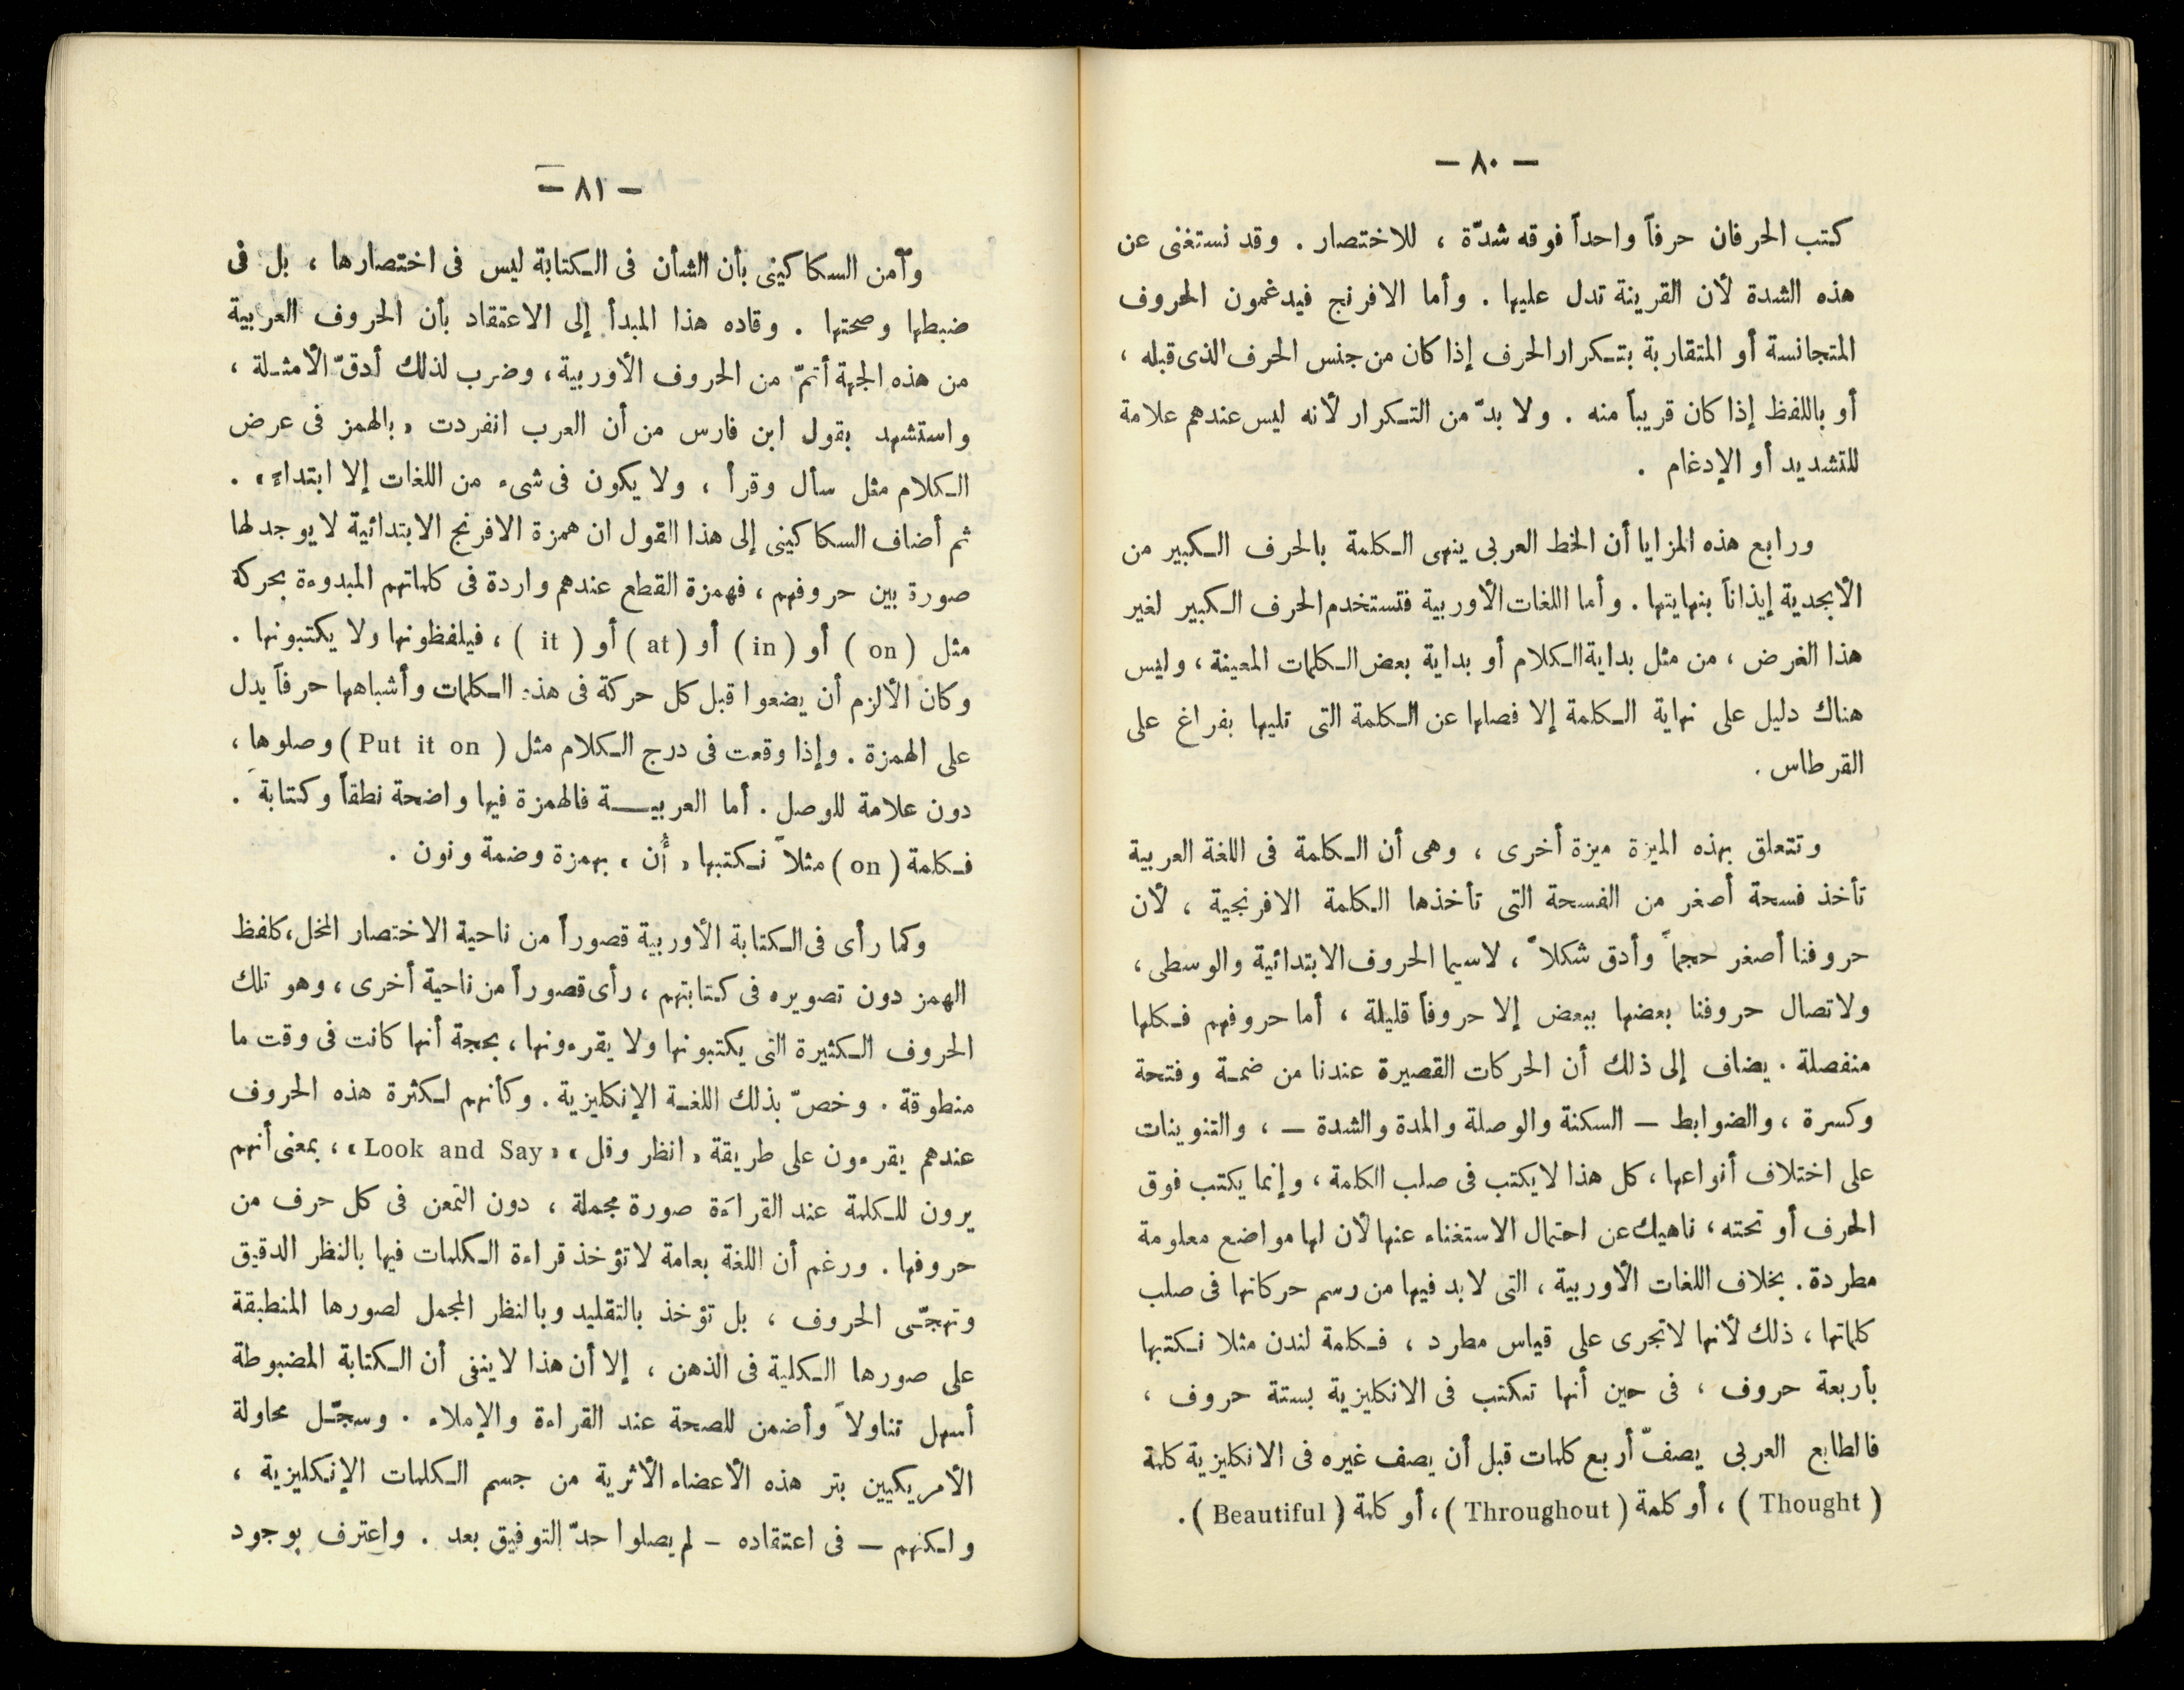 — ٨٠ —
كتب الحرفان حرفاً واحداً فوقه شدّة ، للاختصار . وقد نستغنى عن
هذه الشدة لأن القرينة تدل عليها . وأما الافرنج فيدغمون الحروف
المتجانسة أو المتقاربة بتكرار الحرف إذا كان من جنس الحرف الذى قبله ،
أو باللفظ إذا كان قريباً منه . ولا بدّ من التكرار لأنه ليس عندهم علامة
للتشديد أو الإدغام .
ورابع هذه المزايا أن الخط العربى ينهى الكلمة بالحرف الكبير من
الأبجدية إيذاناً بنهايتها . وأما اللغات الأوربية فتستخدم الحرف الكبير لغير
هذا الغرض ، من مثل بداية الكلام أو بداية بعض الكلمات المعينة ، وليس
هناك دليل على نهاية الكلمة إلا فصلها عن الكلمة التى تليها بفراغ على
القرطاس .
وتتعلق بهذه الميزة ميزة أخرى ، وهى أن الكلمة فى اللغة العربية
تأخذ فسحة أصغر من الفسحة التى تأخذها الكلمة الافرنجية ، لأن
حروفنا أصغر حجماً وأدق شكلاً ، لاسيما الحروف الابتدائية والوسطى ،
ولاتصال حروفنا بعضها ببعض إلا حروفاً قليلة ، أما حروفهم فكلها
منفصلة . يضاف إلى ذلك أن الحركات القصيرة عندنا من ضمة وفتحة
وكسرة ، والضوابط — السكنة والوصلة والمدة والشدة — ، والتنوينات
على اختلاف أنواعها ، كل هذا لايكتب فى صلب الكلمة ، وإنما يكتب فوق
الحرف أو تحته ، ناهيك عن احتمال الاستغناء عنها لأن لها مواضع معلومة
مطردة . بخلاف اللغات الأوربية ، التى لابد فيها من رسم حركاتها فى صلب
كلماتها ، ذلك لأنها لاتجرى على قياس مطرد ، فكلمة لندن مثلا نكتبها
بأربعة حروف ، فى حين أنها تكتب فى الانكليزية بستة حروف ،
فالطابع العربى يصفّ أربع كلمات قبل أن يصف غيره فى الانكليزية كلمة
( Thought ) ، أو كلمة ( Throughout ) ، أو كلمة ( Beautiful ) .
— ٨١ —
وآمن السكاكينى بأن الشأن فى الكتابة ليس فى اختصارها ، بل فى
ضبطها وصحتها . وقاده هذا المبدأ إلى الاعتقاد بأن الحروف العربية
من هذه الجهة أتمّ من الحروف الأوربية ، وضرب لذلك أدقّ الأمثلة ،
واستشهد بقول ابن فارس من أن العرب انفردت « بالهمز فى عرض
الكلام مثل سأل وقرأ ، ولا يكون فى شىء من اللغات إلا ابتداءً » .
ثم أضاف السكاكينى إلى هذا القول ان همزة الافرنج الابتدائية لايوجد لها
صورة بين حروفهم ، فهمزة القطع عندهم واردة فى كلماتهم المبدوءة بحركة
مثل ( on ) أو ( in ) أو ( at ) أو ( it ) ، فيلفظونها ولا يكتبونها .
وكان الألزم أن يضعوا قبل كل حركة فى هذه الكلمات وأشباهها حرفاً يدل
على الهمزة . وإذا وقعت فى درج الكلام مثل ( Put it on ) وصلوها ،
دون علامة للوصل . أما العربيـــة فالهمزة فيها واضحة نطقاً وكتابة .
فكلمة ( on ) مثلاً نكتبها « أُن » بهمزة وضمة ونون .
وكما رأى فى الكتابة الأوربية قصوراً من ناحية الاختصار المخل ، كلفظ
الهمز دون تصويره فى كتابتهم ، رأى قصوراً من ناحية أخرى ، وهو تلك
الحروف الكثيرة التى يكتبونها ولا يقرءونها ، بحجة أنها كانت فى وقت ما
منطوقة . وخصّ بذلك اللغة الإنكليزية . وكأنهم لكثرة هذه الحروف
عندهم يقرءون على طريقة « انظر وقل » « Look and Say » ، بمعنى أنهم
يرون للكلمة عند القراءَة صورة مجملة ، دون التمعن فى كل حرف من
حروفها . ورغم أن اللغة بعامة لاتؤخذ قراءة الكلمات فيها بالنظر الدقيق
وتهجّى الحروف ، بل تؤخذ بالتقليد وبالنظر المجمل لصورها المنطبقة
على صورها الكلية فى الذهن ، إلا أن هذا لاينفى أن الكتابة المضبوطة
أسهل تناولاً وأضمن للصحة عند القراءة والإملاء . وسجّل محاولة
الأمريكيين بتر هذه الأعضاء الأثرية من جسم الكلمات الإنكليزية ،
ولكنهم — فى اعتقاده — لم يصلوا حدّ التوفيق بعد . واعترف بوجود